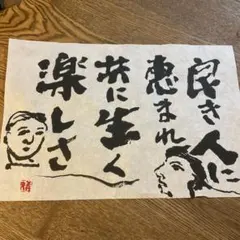 良き人に
恵まれ
共に生く
楽しさ